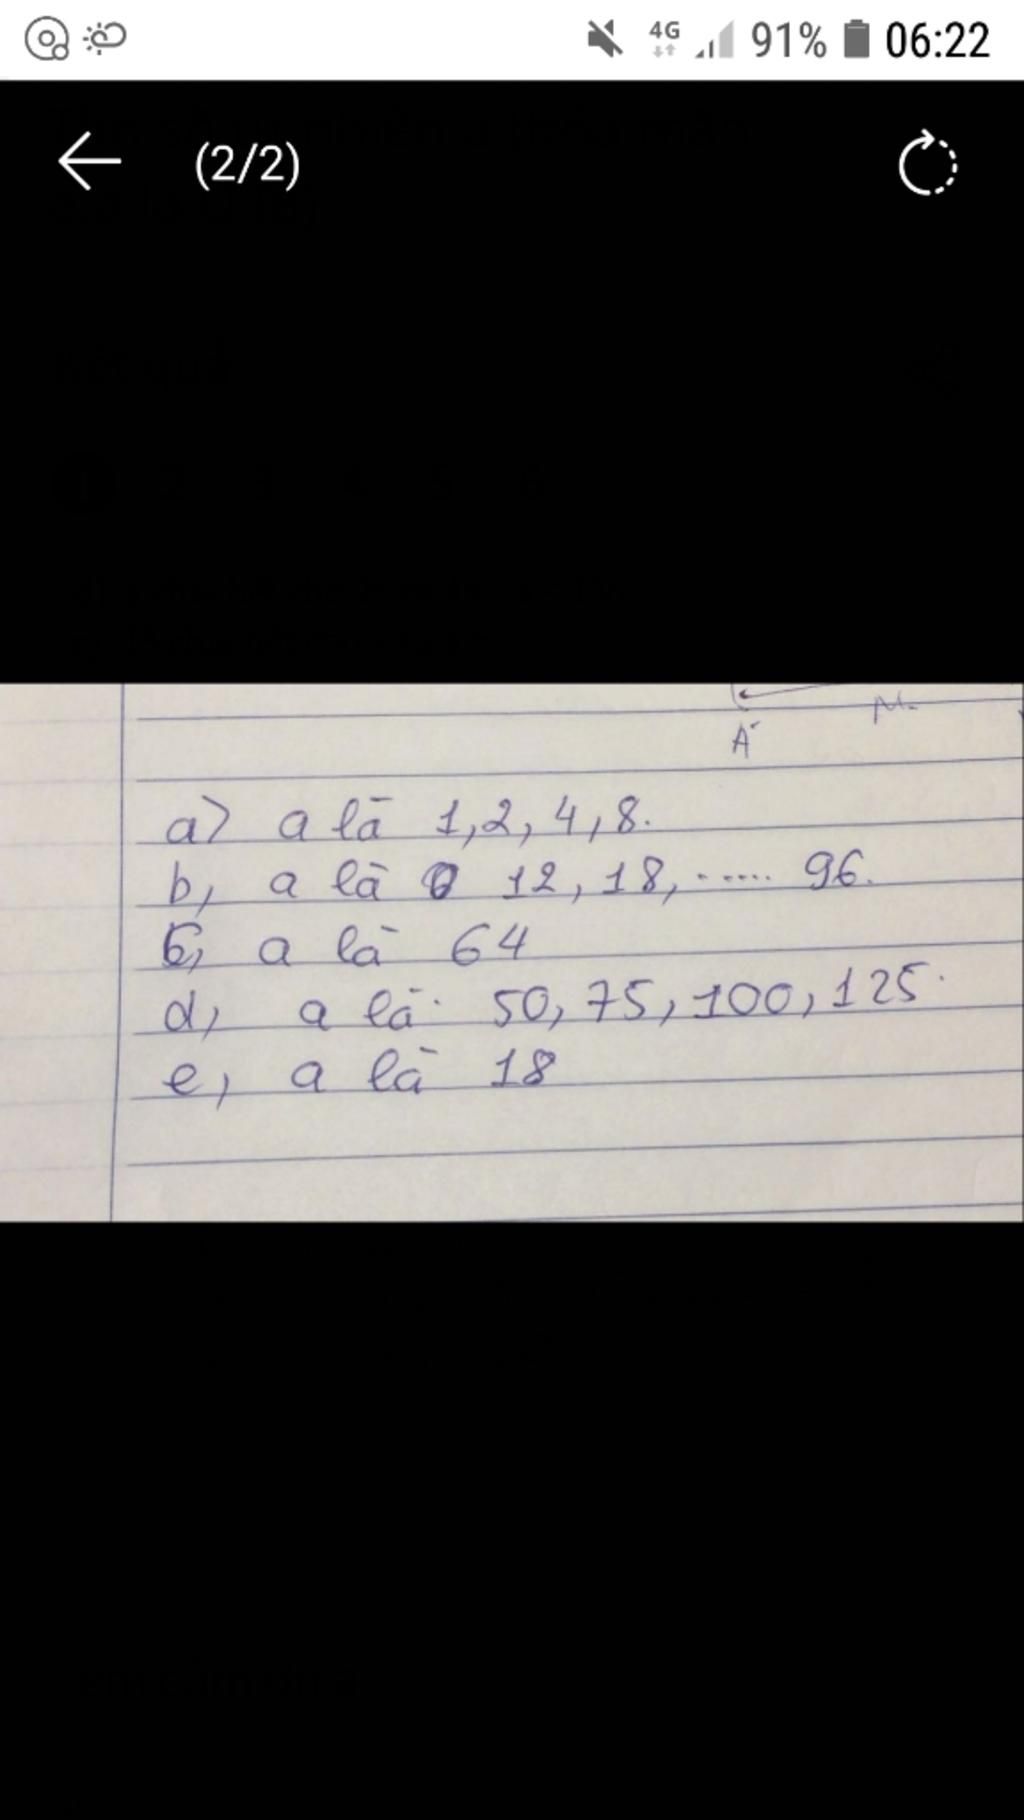 4G 91% 06:22
(2/2)
A
M
a) a là 1, 2, 4, 8.
b, a là 12, 18, ..... 96.
c, a là 64
d, a là 50, 75, 100, 125.
e, a là 18